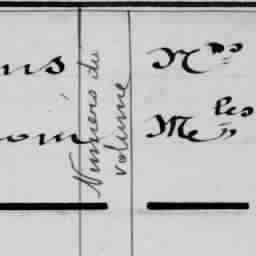 ns
nom
Numéro du
volume
Nos
Mles